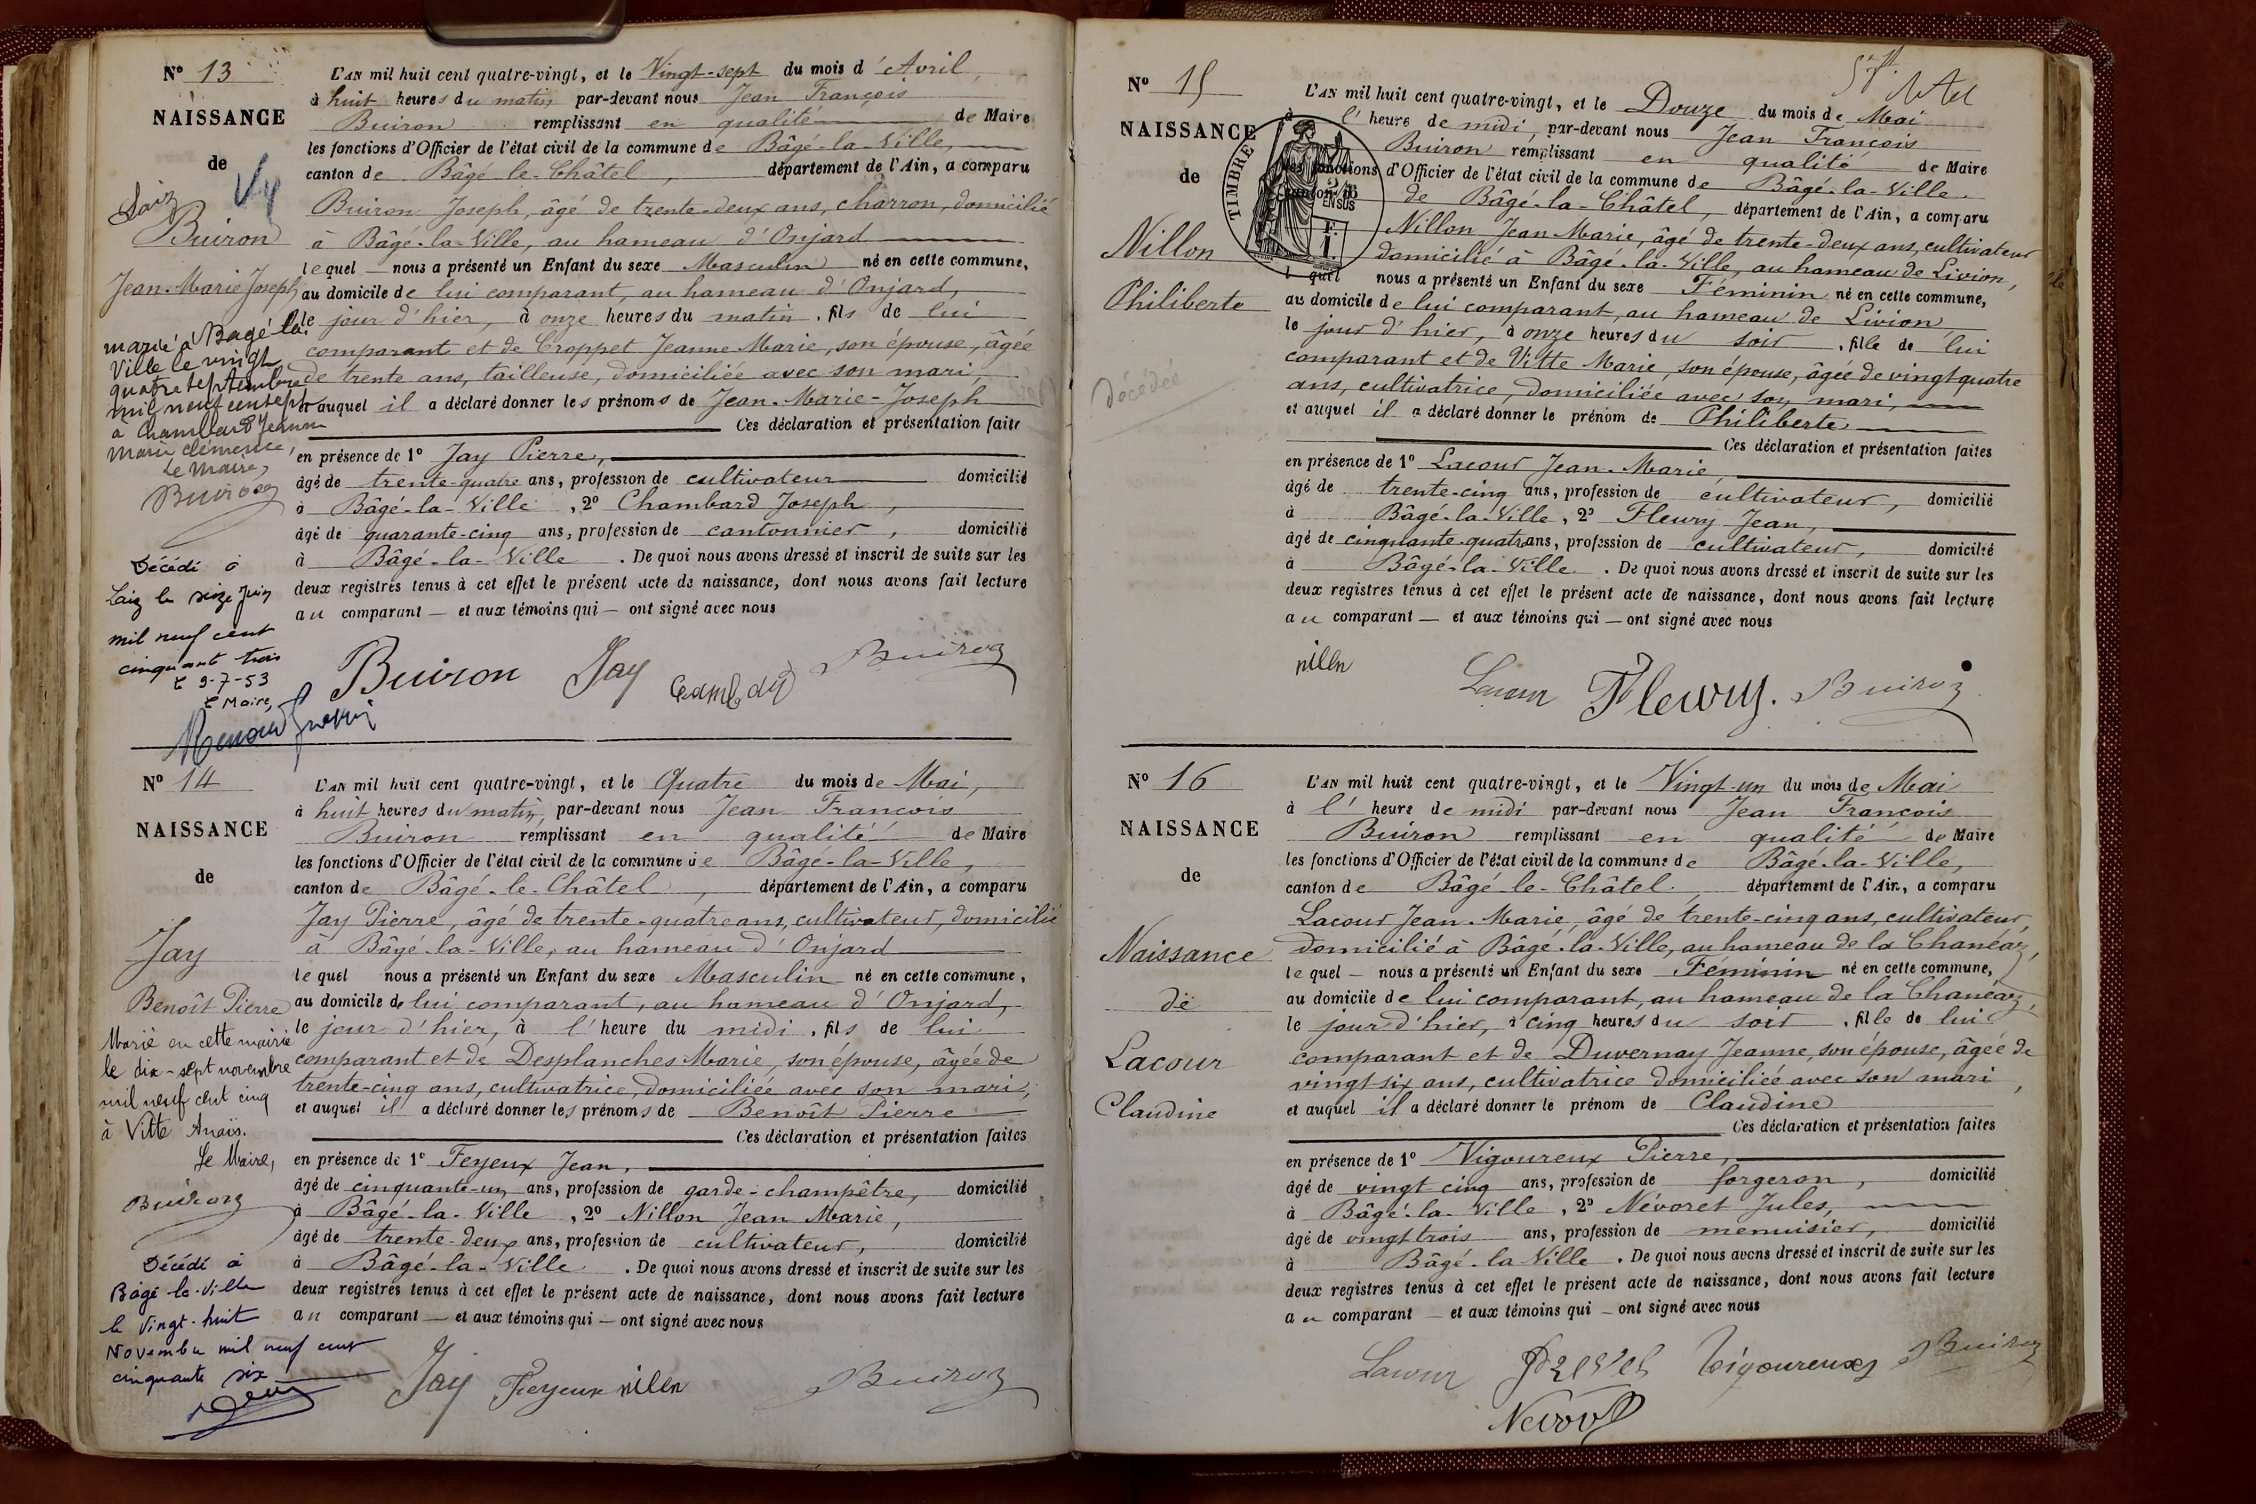 N° 13
NAISSANCE
de
Laiz
Buiron
Jean-Marie Joseph
marié à Bagé la
Ville le vingt
quatre septembre
mil neuf cent sept
à Chambard Jeanne
Marie Clémence,
Le Maire,
Buiron
Décédé à
Laiz le seize Juin
mil neuf cent
cinquante trois
le 9-7-53
le Maire,
L'AN mil huit cent quatre-vingt, et le Vingt-sept du mois d'Avril,
à huit heures du matin par-devant nous Jean François
Buiron remplissant en qualité de Maire
les fonctions d'Officier de l'état civil de la commune de Bâgé-la-Ville,
canton de Bâgé-le-Châtel, département de l'Ain, a comparu
Buiron Joseph, âgé de trente-deux ans, charron, domicilié
à Bâgé-la-Ville, au hameau d'Onjard
lequel nous a présenté un Enfant du sexe Masculin né en cette commune,
au domicile de lui comparant, au hameau d'Onjard,
le jour d'hier, à onze heures du matin, fils de lui
comparant et de Croppet Jeanne Marie, son épouse, âgée
de trente ans, tailleuse, domiciliée avec son mari,
et auquel il a déclaré donner les prénoms de Jean-Marie-Joseph
Ces déclaration et présentation faites
en présence de 1° Jay Pierre,
âgé de trente-quatre ans, profession de cultivateur domicilié
à Bâgé-la-Ville, 2° Chambard Joseph,
âgé de quarante-cinq ans, profession de cantonnier, domicilié
à Bâgé-la-Ville. De quoi nous avons dressé et inscrit de suite sur les
deux registres tenus à cet effet le présent acte de naissance, dont nous avons fait lecture
au comparant — et aux témoins qui — ont signé avec nous
Buiron Jay Chambard Buiron
N° 14
NAISSANCE
de
Jay
Benoît Pierre
Marié en cette mairie
le dix-sept novembre
mil neuf cent cinq
à Vitte Anaïs.
Le Maire,
Buiron
Décédé à
Bâgé-la-Ville
le Vingt-huit
Novembre mil neuf cent
cinquante six
L'AN mil huit cent quatre-vingt, et le Quatre du mois de Mai,
à huit heures du matin, par-devant nous Jean François
Buiron remplissant en qualité de Maire
les fonctions d'Officier de l'état civil de la commune de Bâgé-la-Ville,
canton de Bâgé-le-Châtel, département de l'Ain, a comparu
Jay Pierre, âgé de trente-quatre ans, cultivateur, domicilié
à Bâgé-la-Ville, au hameau d'Onjard
lequel nous a présenté un Enfant du sexe Masculin né en cette commune,
au domicile de lui comparant, au hameau d'Onjard,
le jour d'hier, à l'heure du midi, fils de lui
comparant et de Desplanches Marie, son épouse, âgée de
trente-cinq ans, cultivatrice, domiciliée avec son mari,
et auquel il a déclaré donner les prénoms de Benoît Pierre
Ces déclaration et présentation faites
en présence de 1° Feyeux Jean,
âgé de cinquante-un ans, profession de garde-champêtre, domicilié
à Bâgé-la-Ville, 2° Nillon Jean Marie,
âgé de trente-deux ans, profession de cultivateur, domicilié
à Bâgé-la-Ville. De quoi nous avons dressé et inscrit de suite sur les
deux registres tenus à cet effet le présent acte de naissance, dont nous avons fait lecture
au comparant — et aux témoins qui — ont signé avec nous
Jay Feyeux nillon Buiron
N° 15
NAISSANCE
de
Nillon
Philiberte
décédée
TIMBRE
L'AN mil huit cent quatre-vingt, et le Douze du mois de Mai
à l'heure de midi, par-devant nous Jean François
Buiron remplissant en qualité de Maire
les fonctions d'Officier de l'état civil de la commune de Bâgé-la-Ville
canton de Bâgé-la-Châtel, département de l'Ain, a comparu
Nillon Jean Marie, âgé de trente-deux ans, cultivateur
domicilié à Bâgé-la-Ville, au hameau de Livion,
lequel nous a présenté un Enfant du sexe Féminin né en cette commune,
au domicile de lui comparant, au hameau de Livion
le jour d'hier, à onze heures du soir, fille de lui
comparant et de Vitte Marie, son épouse, âgée de vingt quatre
ans, cultivatrice, domiciliée avec son mari,
et auquel il a déclaré donner le prénom de Philiberte
Ces déclaration et présentation faites
en présence de 1° Lacour Jean-Marie,
âgé de trente-cinq ans, profession de cultivateur, domicilié
à Bâgé-la-Ville, 2° Fleury Jean,
âgé de cinquante-quatre ans, profession de cultivateur, domicilié
à Bâgé-la-Ville. De quoi nous avons dressé et inscrit de suite sur les
deux registres tenus à cet effet le présent acte de naissance, dont nous avons fait lecture
au comparant — et aux témoins qui — ont signé avec nous
nillon
Lacour Fleury. Buiron
N° 16
NAISSANCE
de
Naissance
de
Lacour
Claudine
L'AN mil huit cent quatre-vingt, et le Vingt-un du mois de Mai
à l'heure de midi par-devant nous Jean François
Buiron remplissant en qualité de Maire
les fonctions d'Officier de l'état civil de la commune de Bâgé-la-Ville,
canton de Bâgé-le-Châtel département de l'Ain, a comparu
Lacour Jean-Marie, âgé de trente-cinq ans, cultivateur,
domicilié à Bâgé-la-Ville, au hameau de la Chanéaz,
lequel — nous a présenté un Enfant du sexe Féminin né en cette commune,
au domicile de lui comparant, au hameau de la Chanéaz,
le jour d'hier, à cinq heures du soir, fille de lui
comparant et de Duvernay Jeanne, son épouse, âgée de
vingt-six ans, cultivatrice domiciliée avec son mari,
et auquel il a déclaré donner le prénom de Claudine
Ces déclaration et présentation faites
en présence de 1° Vigoureux Pierre,
âgé de vingt cinq ans, profession de forgeron, domicilié
à Bâgé-la-Ville, 2° Névoret Jules,
âgé de vingt trois ans, profession de menuisier, domicilié
à Bâgé-la-Ville. De quoi nous avons dressé et inscrit de suite sur les
deux registres tenus à cet effet le présent acte de naissance, dont nous avons fait lecture
au comparant — et aux témoins qui — ont signé avec nous
Lacour Vigoureux Buiron